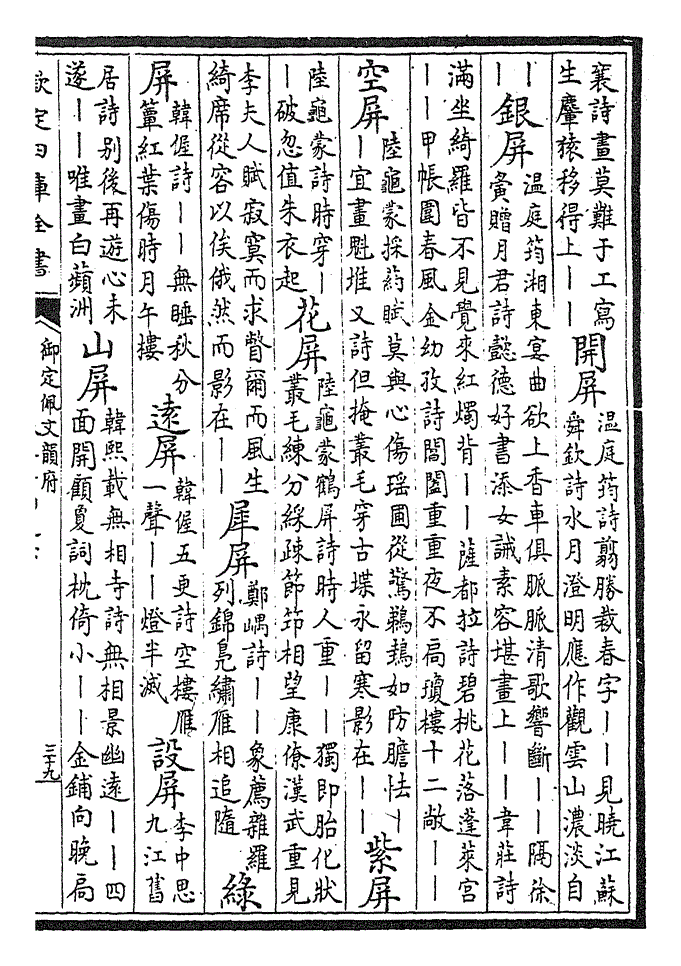 襄詩畫莫難于工寫
生麞猿移得上丨丨
開屏
温庭筠詩翦勝裁春字丨丨見曉江蘇
舜欽詩水月澄明應作觀雲山濃淡自
丨丨
銀屏
温庭筠湘東宴曲欲上香車俱脈脈清歌響斷丨丨隔徐
夤贈月君詩懿德好書添女誡素容堪畫上丨丨韋莊詩
滿坐綺羅皆不見覺來紅燭背丨丨薩都拉詩碧桃花落蓬萊宮
丨丨甲帳圍春風金幼孜詩閶闔重重夜不扃瓊樓十二敞丨丨
空屏
陸龜蒙採药賦莫與心傷瑶圃從驚鵜鶘如防膽怯丨
丨宜畫魁堆又詩但掩叢毛穿古堞永留寒影在丨丨
紫屏
陸龜蒙詩時穿丨
丨破忽值朱衣起
花屏
陸龜蒙鶴屏詩時人重丨丨獨即胎化狀
叢毛練分綵疎節笻相望康僚漢武重見
李夫人賦寂寞而求瞥爾而風生
綺席從容以俟俄然而影在丨丨
犀屏
鄭嵎詩丨丨象薦雜羅
列錦鳬繡雁相追隨
綠
屏
韓偓詩丨丨無睡秋分
簟紅葉傷時月午樓
遠屏
韓偓五更詩空樓雁
一聲丨丨燈半滅
設屏
李中思
九江舊
居詩别後再遊心未
遂丨丨唯畫白蘋洲
山屏
韓熙載無相寺詩無相景幽遠丨丨四
面開顧敻詞枕倚小丨丨金鋪向晚扃
欽定四庫全書
御定佩文韻府
三十九